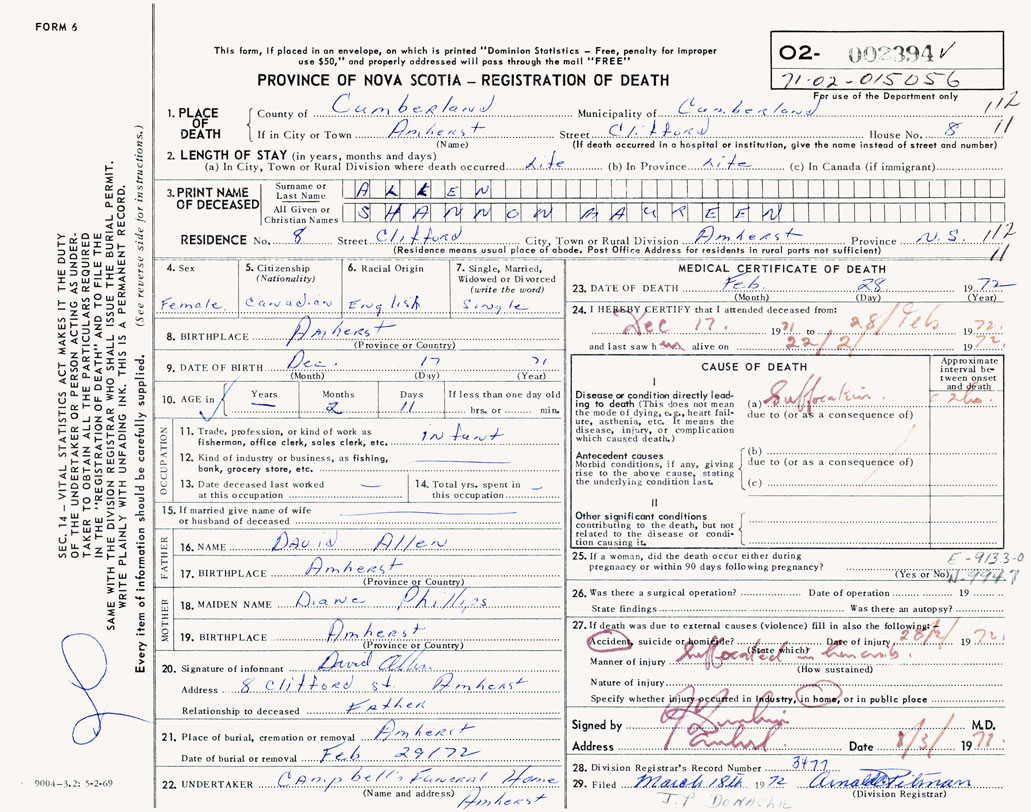 FORM 6
This form, if placed in an envelope, on which is printed "Dominion Statistics – Free, penalty for improper
use $50," and properly addressed will pass through the mail "FREE"
PROVINCE OF NOVA SCOTIA – REGISTRATION OF DEATH
02- 002394
71-02-015056
For use of the Department only
112
11
1. PLACE OF DEATH
County of Cumberland Municipality of Cumberland
If in City or Town Amherst Street Clifford House No. 8
(Name) (If death occurred in a hospital or institution, give the name instead of street and number)
2. LENGTH OF STAY (in years, months and days)
(a) In City, Town or Rural Division where death occurred Life (b) In Province Life (c) In Canada (if immigrant)
3. PRINT NAME OF DECEASED
Surname or Last Name ALLEN
All Given or Christian Names SHANNON MAUREEN
RESIDENCE No. 8 Street Clifford City, Town or Rural Division Amherst Province N.S. 112
(Residence means usual place of abode. Post Office Address for residents in rural parts not sufficient) 11
4. Sex
Female
5. Citizenship (Nationality)
Canadian
6. Racial Origin
English
7. Single, Married, Widowed or Divorced (write the word)
Single
8. BIRTHPLACE Amherst
(Province or Country)
9. DATE OF BIRTH Dec. 17 71
(Month) (Day) (Year)
10. AGE in Years — Months 2 Days 11 If less than one day old
hrs. or min.
OCCUPATION
11. Trade, profession, or kind of work as
fisherman, office clerk, sales clerk, etc. Infant
12. Kind of industry or business, as fishing,
bank, grocery store, etc.
13. Date deceased last worked
at this occupation —
14. Total yrs. spent in
this occupation —
15. If married give name of wife
or husband of deceased
FATHER
16. NAME David Allen
17. BIRTHPLACE Amherst
(Province or Country)
MOTHER
18. MAIDEN NAME Diane Phillips
19. BIRTHPLACE Amherst
(Province or Country)
20. Signature of informant David Allen
Address 8 Clifford St. Amherst
Relationship to deceased Father
21. Place of burial, cremation or removal Amherst
Date of burial or removal Feb 29/72
22. UNDERTAKER Campbell's Funeral Home
(Name and address) Amherst
MEDICAL CERTIFICATE OF DEATH
23. DATE OF DEATH Feb. 28 1972
(Month) (Day) (Year)
24. I HEREBY CERTIFY that I attended deceased from:
Dec 17. 1971 to 28/Feb 1972.
and last saw h alive on 22/2/ 1972.
CAUSE OF DEATH
Approximate interval between onset and death
I
Disease or condition directly lead-
ing to death (This does not mean
the mode of dying, e.g., heart fail-
ure, asthenia, etc. It means the
disease, injury, or complication
which caused death.)
(a) Suffocation.
due to (or as a consequence of)
Antecedent causes
Morbid conditions, if any, giving
rise to the above cause, stating
the underlying condition last.
(b)
due to (or as a consequence of)
(c)
II
Other significant conditions
contributing to the death, but not
related to the disease or condi-
tion causing it.
25. If a woman, did the death occur either during
pregnancy or within 90 days following pregnancy?
(Yes or No)
E-9133-0
N-9947
26. Was there a surgical operation? Date of operation 19
State findings Was there an autopsy?
27. If death was due to external causes (violence) fill in also the following:–
Accident, suicide or homicide? Date of injury 28/2/ 1972.
(State which)
Manner of injury Suffocated in her crib.
(How sustained)
Nature of injury
Specify whether injury occurred in industry, in home, or in public place
Signed by M.D.
Address Amherst. Date 8/3/ 1972.
28. Division Registrar's Record Number 3477
29. Filed March 18th 1972 Arnold Pitman
(Division Registrar)
J.P. DONACHIE
SEC. 14 – VITAL STATISTICS ACT MAKES IT THE DUTY
OF THE UNDERTAKER OR PERSON ACTING AS UNDER-
TAKER TO OBTAIN ALL THE PARTICULARS REQUIRED
IN THE "REGISTRATION OF DEATH" AND TO FILE THE
SAME WITH THE DIVISION REGISTRAR WHO SHALL ISSUE THE BURIAL PERMIT.
WRITE PLAINLY WITH UNFADING INK. THIS IS A PERMANENT RECORD.
Every item of information should be carefully supplied. (See reverse side for instructions.)
9004-3.2: 5-2-69